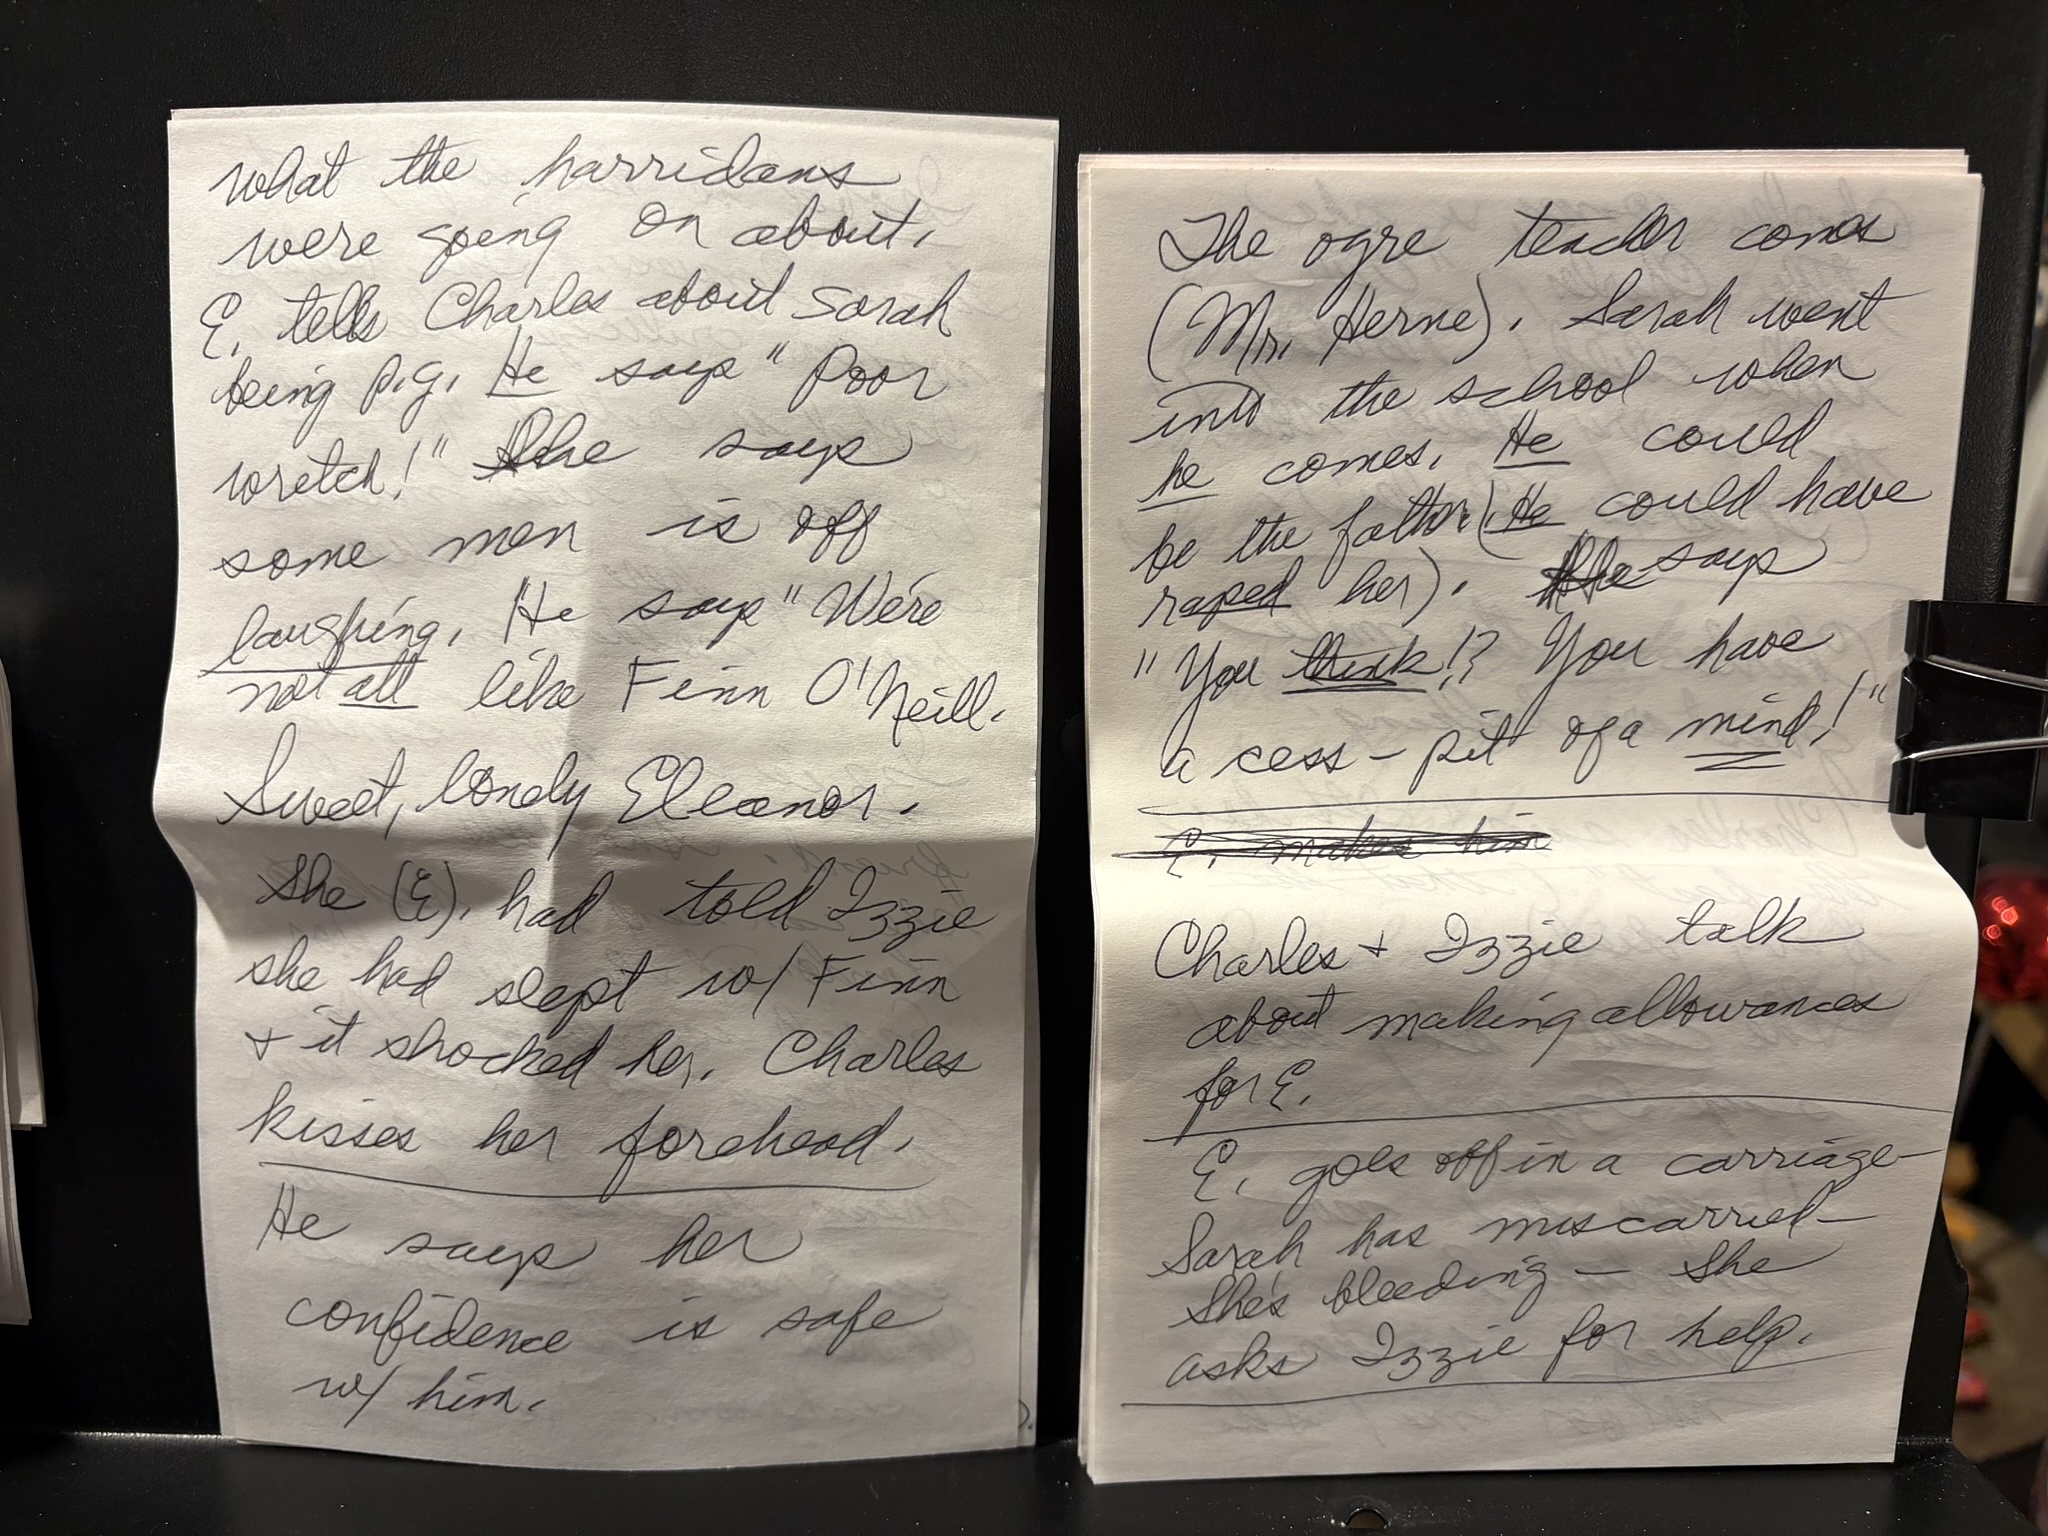 what the harridans
were going on about.
E. tells Charles about Sarah
being p.g. He says "Poor
wretch!" She says
some men is off
laughing. He says "We're
not all like Finn O'Neill.
Sweet, lonely Eleanor.
She (E). had told Izzie
she had slept w/ Finn
+ it shocked her. Charles
kisses her forehead.
He says her
confidence is safe
w/ him.
The ogre teacher comes
(Mr. Herne). Sarah went
into the school when
he comes. He could
be the father. (He could have
raped her). She says
"You think!? You have
a cess-pit of a mind!"
E. makes him
Charles + Izzie talk
about making allowances
for E.
E. goes off in a carriage-
Sarah has miscarried-
She's bleeding - She
asks Izzie for help.